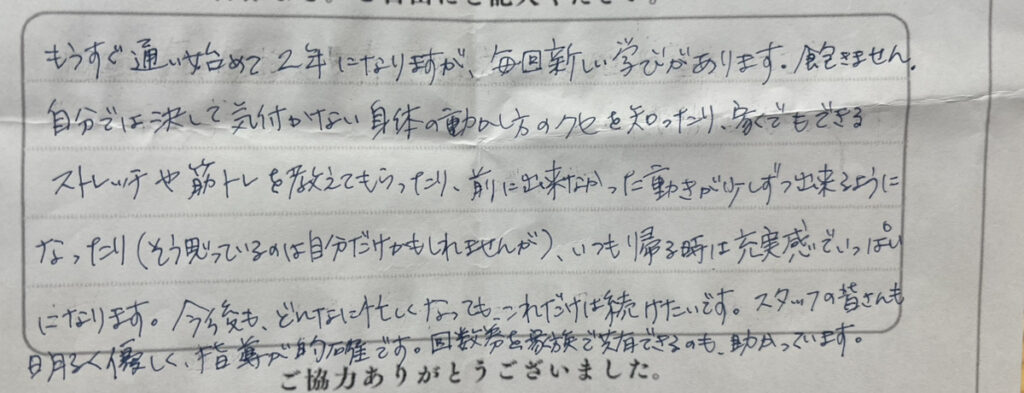 ご自由にご記入ください。
もうすぐ通い始めて2年になりますが、毎回新しい学びがあります。飽きません。
自分では決して気付かない身体の動かし方のクセを知ったり、家でもできる
ストレッチや筋トレを教えてもらったり、前に出来なかった動きが少しずつ出来るように
なったり(そう思っているのは自分だけかもしれませんが)、いつも帰る時は充実感でいっぱい
になります。今後も、どんなに忙しくなっても、これだけは続けたいです。スタッフの皆さんも
明るく優しく、指導が的確です。回数券を家族で共有できるのも、助かっています。
ご協力ありがとうございました。